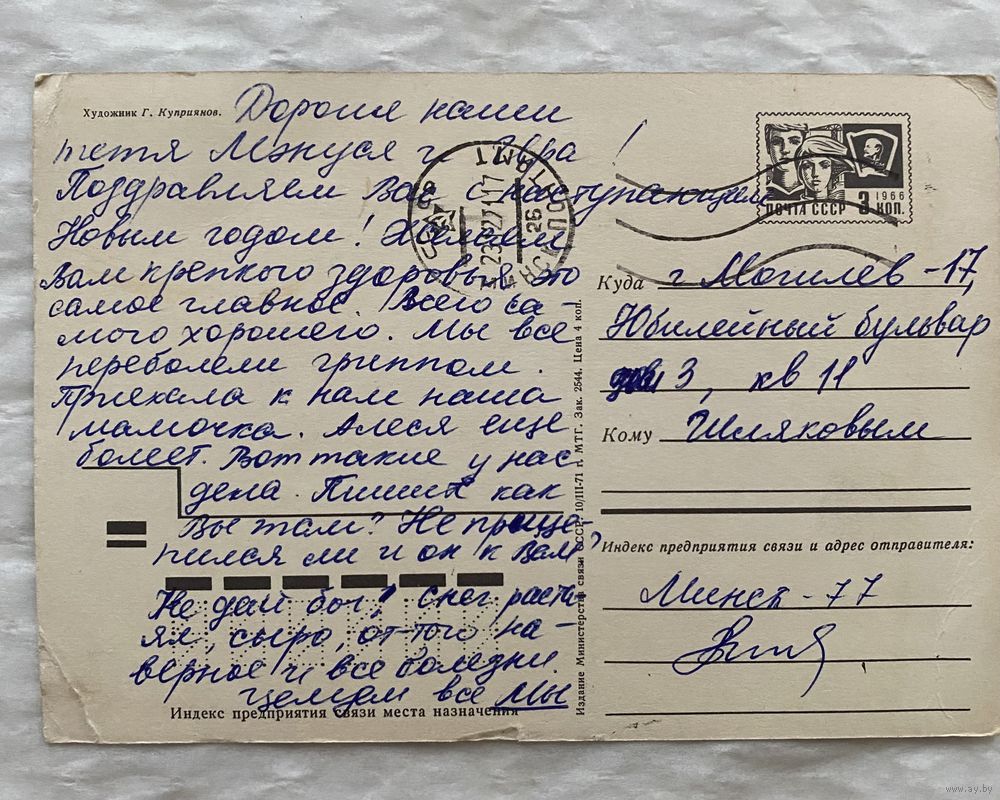 Художник Г. Куприянов.
Дорогие наши
тетя Мэнуся и !
Поздравляем Вас с наступающим
Новым годом! Желаем
Вам крепкого здоровья, это
самое главное. Всего са-
мого хорошего. Мы все
переболели гриппом.
Приехала к нам наша
мамочка. Алеся еще
болеет. Вот такие у нас
дела. Пишите как
Вы там? Не прице-
пился ли и он к Вам?
Не дай бог! Снег раста-
ял, сыро, от того на-
верное и все болезни.
Целуем все Мы
Индекс предприятия связи места назначения
Издание Министерства связи СССР. 10/III-71 г. МТГ. Зак. 2544. Цена 4 коп.
1966
ПОЧТА СССР 3 КОП.
Куда г Могилев-17,
Юбилейный бульвар
дом 3, кв 11
Кому Шляковым
Индекс предприятия связи и адрес отправителя:
Минск-77
www.ay.by